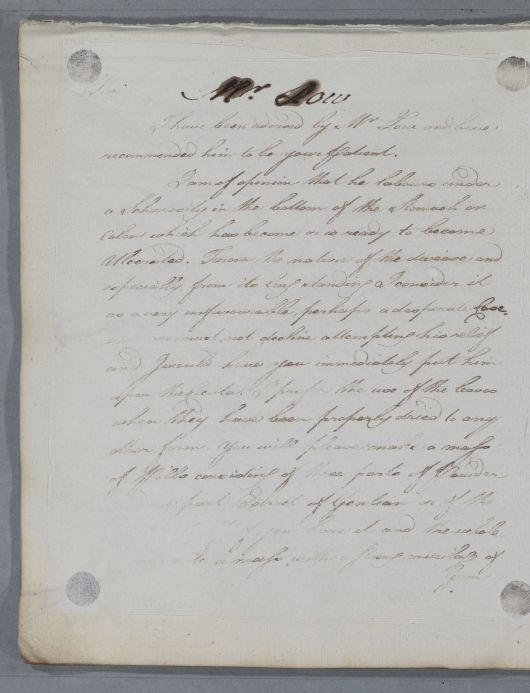 Mr. Low
I have been advised by Mr. Low and have
recommended him to be your Patient.
I am of opinion that he labours under
a Schirrosity in the bottom of the Stomach or
Colon which has become or is ready to become
Ulcerated. From the nature of the disease and
especially from its long standing I consider it
as a very unfavourable, perhaps a desperate Case.
we must not decline attempting his relief
and I would have you immediately put him
upon the Cicuta. I prefer the use of the leaves
when they have been properly dried to any
other form. You will please make a mass
of Pills consisting of three parts of Powder
part Extract of Gentian or of the
if you have it and the whole
to a mass with a strong mucilage of
Gum